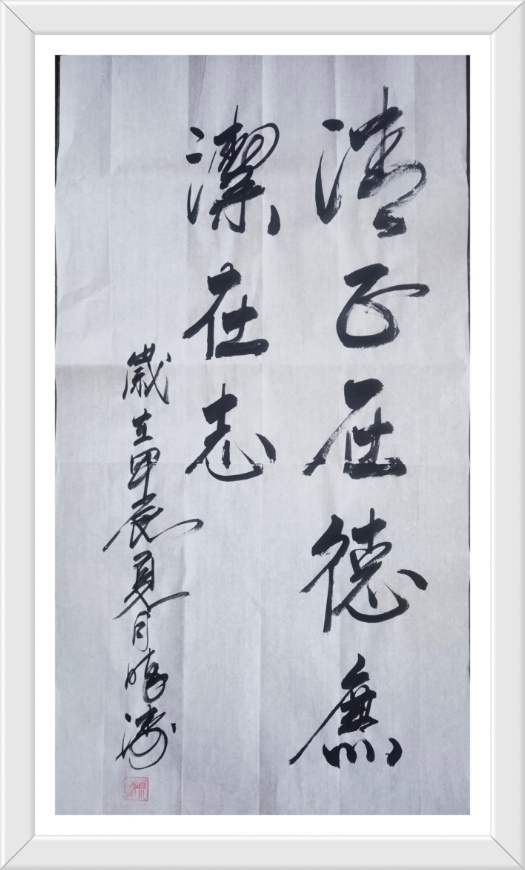 清正在德廉
潔在志
歲在甲辰夏月